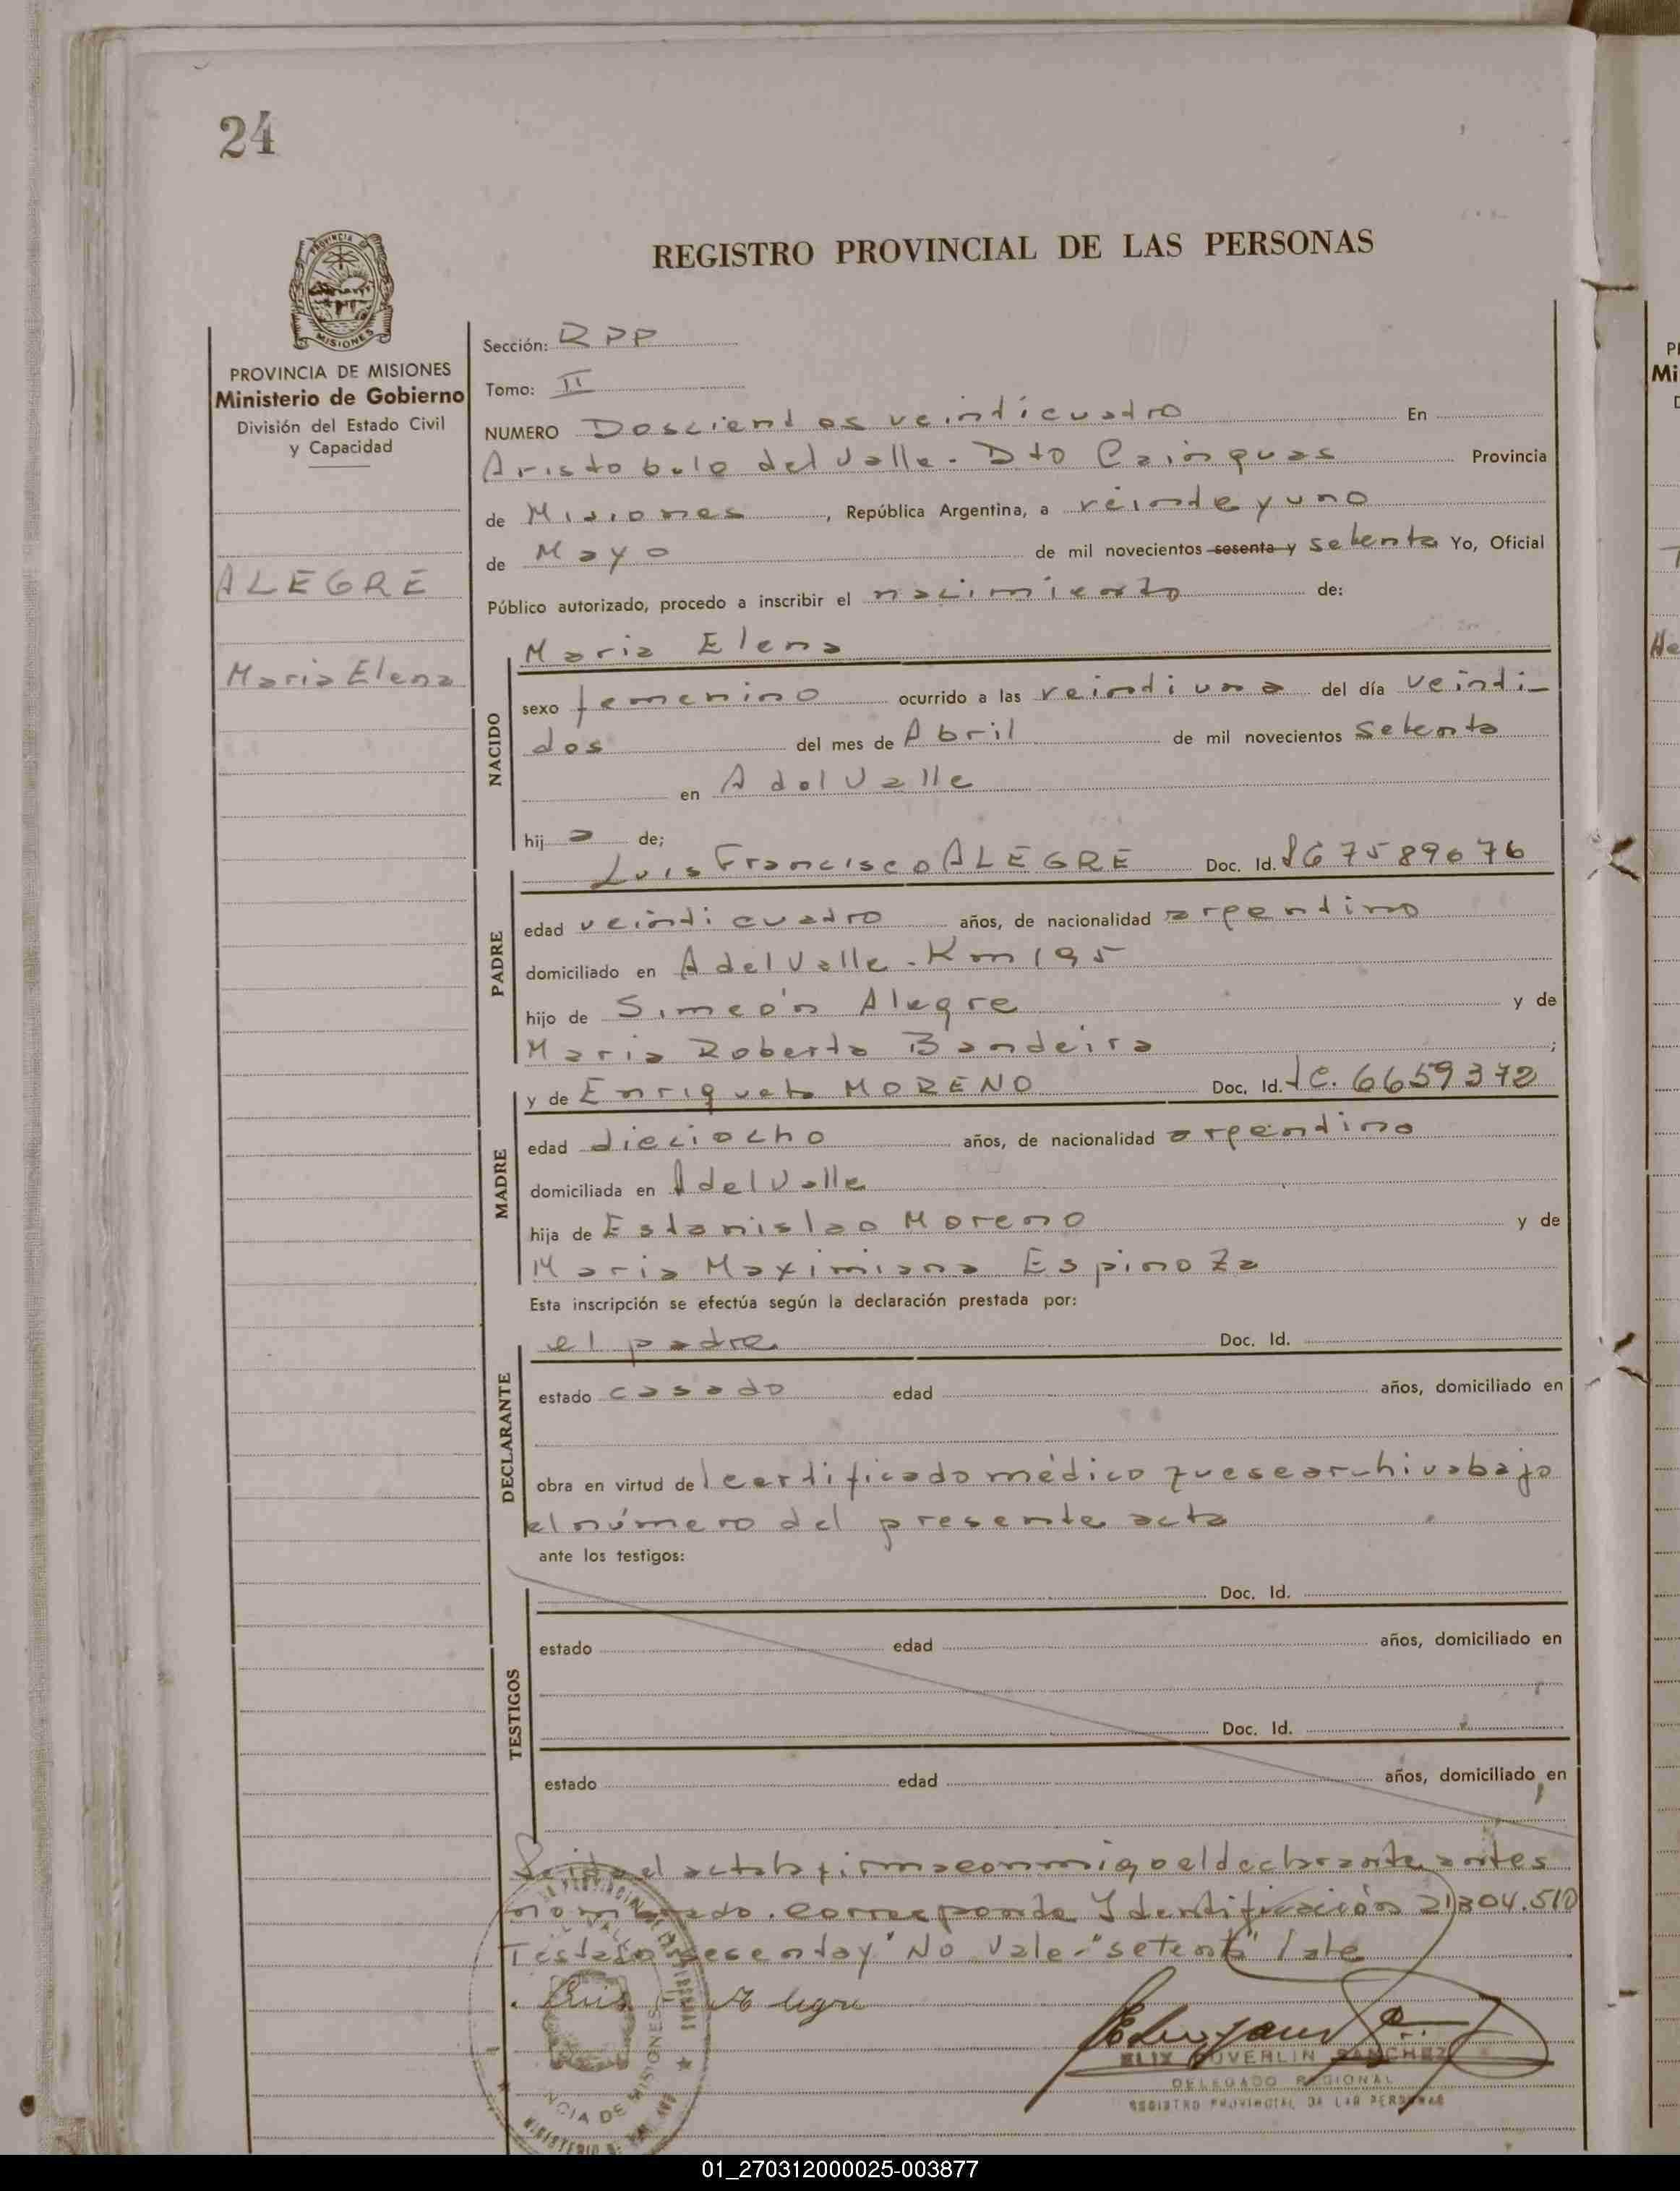 24
REGISTRO PROVINCIAL DE LAS PERSONAS
PROVINCIA DE MISIONES
Ministerio de Gobierno
División del Estado Civil
y Capacidad
ALEGRE
Maria Elena
Sección: RPP
Tomo: II
NUMERO Doscientos veinticuatro En
Aristobulo del Valle - Dto Cainguas Provincia
de Misiones, República Argentina, a veinte y uno
de Mayo de mil novecientos sesenta y setenta Yo, Oficial
Público autorizado, procedo a inscribir el nacimiento de:
NACIDO
Maria Elena
sexo femenino ocurrido a las veintiuna del día veinti-
dos del mes de Abril de mil novecientos setenta
en A del Valle
hij a de;
PADRE
Luis Francisco ALEGRE Doc. Id. 7589676
edad veinticuatro años, de nacionalidad argentino
domiciliado en A del Valle - Km 195
hijo de Simeón Alegre y de
Maria Roberta Bandeira;
MADRE
y de Enriqueta MORENO Doc. Id. LC. 6659372
edad dieciocho años, de nacionalidad argentina
domiciliada en A del Valle
hija de Estanislao Moreno y de
Maria Maximiana Espinoza
Esta inscripción se efectúa según la declaración prestada por:
DECLARANTE
el padre Doc. Id.
estado casado edad años, domiciliado en
obra en virtud del certificado médico que se archiva bajo
el número del presente acta
ante los testigos:
TESTIGOS
Doc. Id.
estado edad años, domiciliado en
Doc. Id.
estado edad años, domiciliado en
Leida el acta la firma conmigo el declarante antes
nombrado. Corresponde Identificación 21.304.510
Testado "sesenta y" No Vale - "setenta" Vale
Luis Alegre
SANCHEZ
DELEGADO REGIONAL
REGISTRO PROVINCIAL DE LAS PERSONAS
PROVINCIA DE MISIONES
01_270312000025-003877